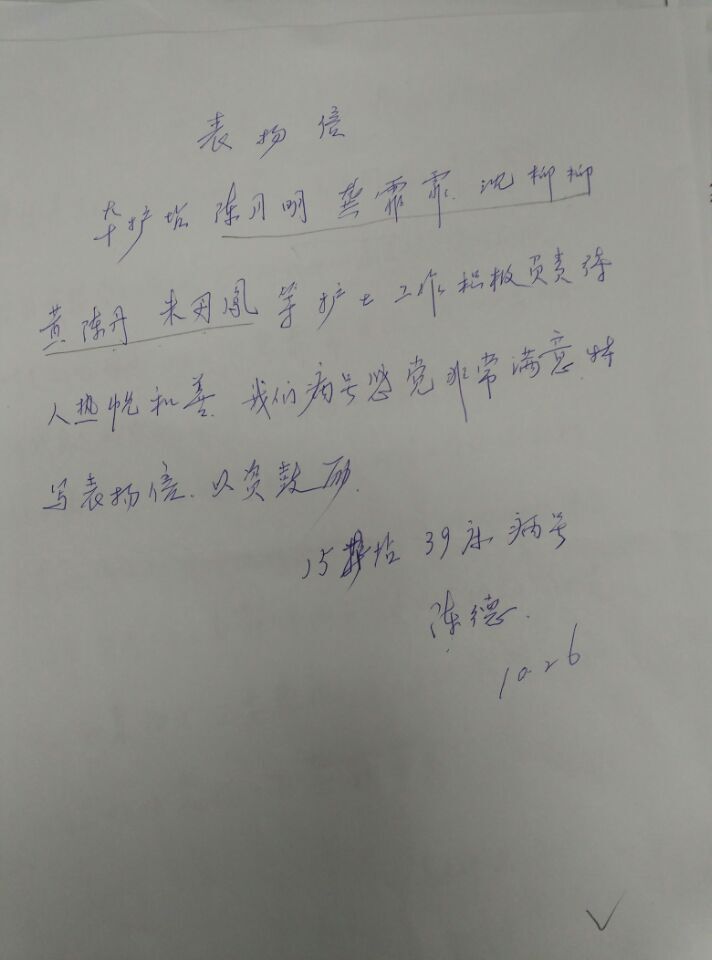 表扬信
护站 陈月明 龚霏霏 沈柳柳
黄陈丹 朱丹凤 等护士工作积极负责待
人热忱和善 我们病号感觉非常满意.特
写表扬信.以资鼓励.
15 护站 39床病号
陈德.
10.26